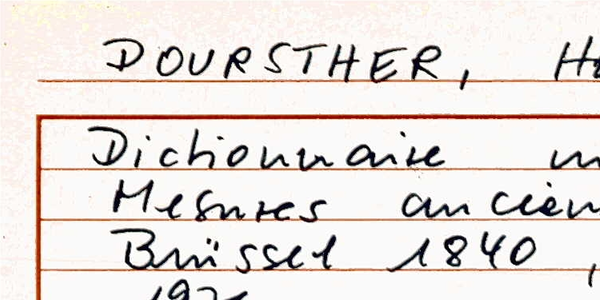 DOURSTHER,
Dictionnaire
Mesures
Brüssel 1840,